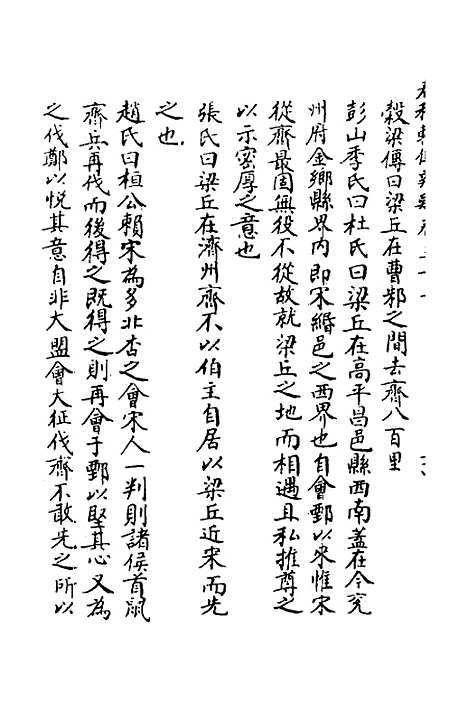 穀梁傳曰梁丘在曹邾之間去齊八百里
彭山季氏曰杜氏曰梁丘在高平昌邑縣西南蓋在今兖
州府金鄉縣界内即宋緡邑之西界也自會鄄以來惟宋
從齊最固無役不從故就梁丘之地而相遇且私推尊之
以示密厚之意也
張氏曰梁丘在濟州齊不以伯主自居以梁丘近宋而先
之也
趙氏曰桓公賴宋為多北杏之會宋人一判則諸侯首鼠
齊兵再伐而後得之既得之則再會于鄄以堅其心又為
之伐鄭以悦其意自非大盟會大征伐齊不敢先之所以